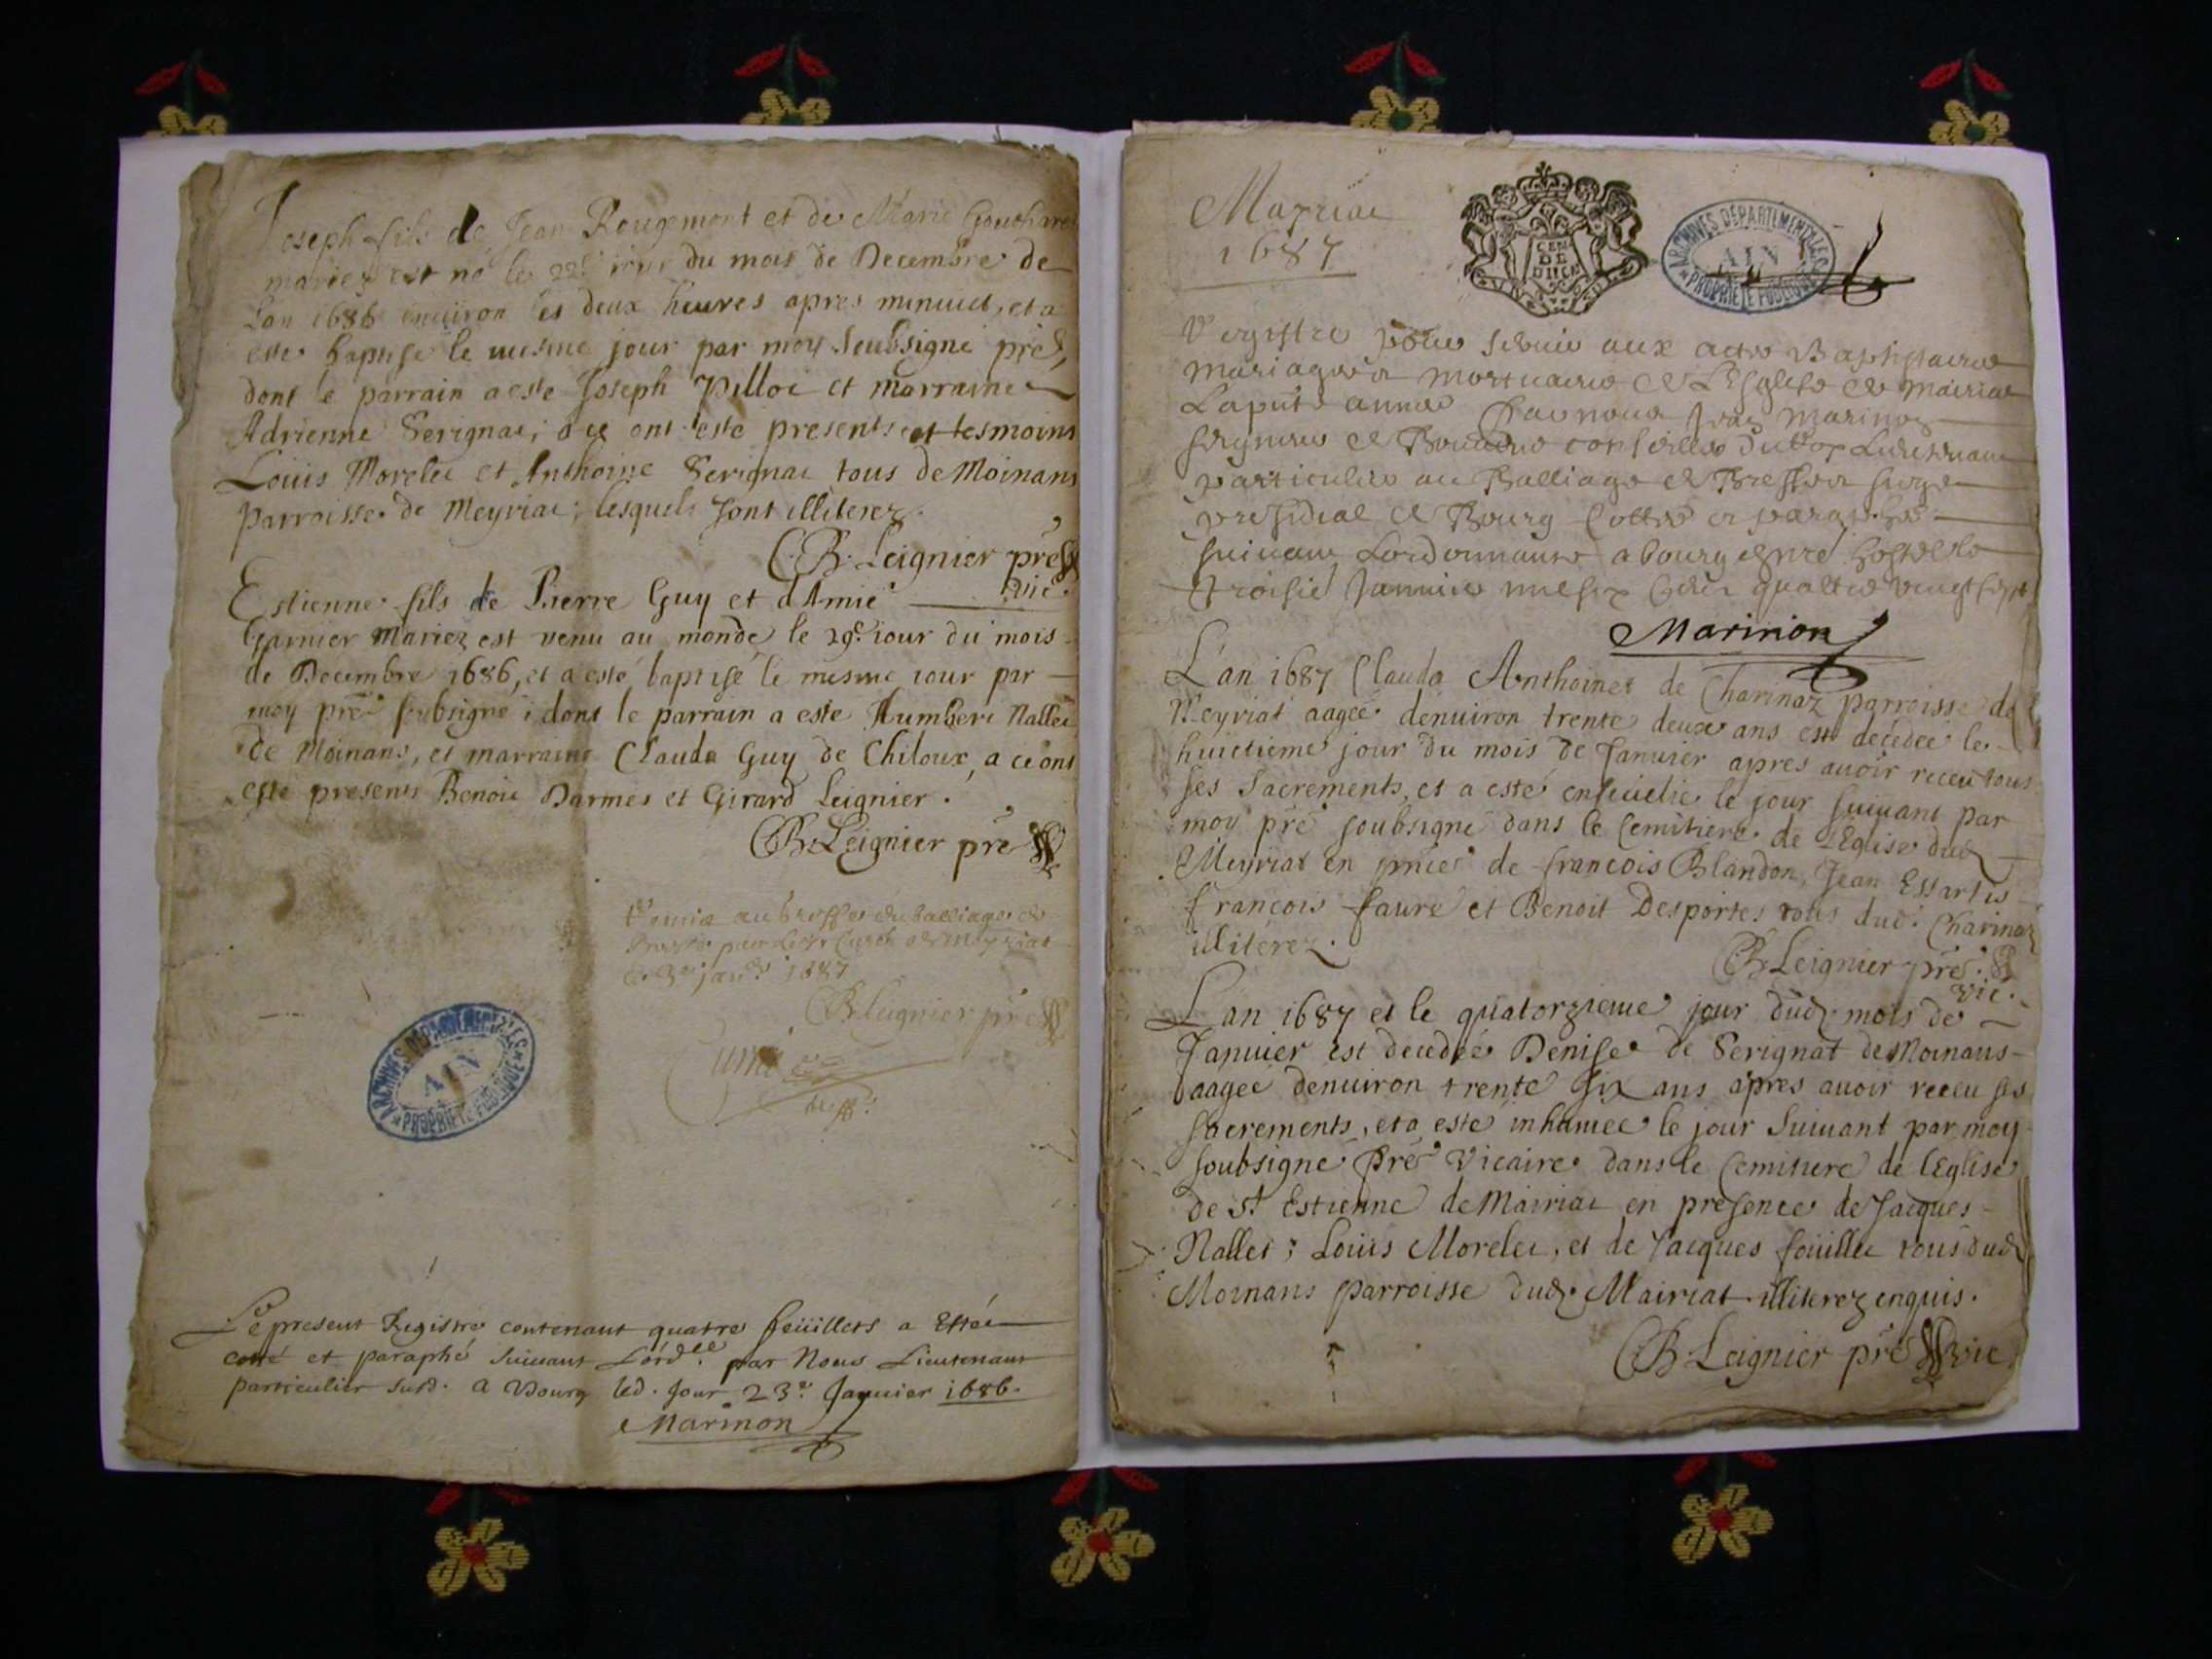 Joseph fils de Jean Rougemont et de Marie
mariez est né le 22e iour du mois de Decembre de
Lan 1686 enuiron les deux heures apres minuict, et a
esté baptisé le mesme jour par moy Soubsigné pre,
dont le parrain a esté Joseph Pilloc et marraine
Adrienne Serignac; a ce ont esté presents et tesmoins
Loüis Morelec et Anthoine Serignac tous de Moinans
parroisse de Meyriac; lesquels sont illiterez.
C. B. Leignier pre
vic.
Estienne fils de Pierre Guy et dAmie
Garnier Mariez est venu au monde le 29e iour du mois
de Decembre 1686, et a esté baptisé le mesme iour par
moy pre soubsigné; dont le parrain a esté Humbert Nallet
de Moinans, et marraine Clauda Guy de Chiloux, a ce ont
esté presents Benoit Darmes et Girard Leignier.
CB Leignier pre
Remis au Greffe du balliage de
Bresse par
le 3e janr 1687
CB Leignier pre
Le present Registre contenant quatre feüillets a Esté
cotté et paraphé Suiuant Lordce par Nous Lieutenant
particulier susd. a Bourg led. Jour 23e Januier 1686.
Marinon
ARCHIVES DÉPARTEMENTALES
AIN
PROPRIÉTÉ PUBLIQUE
Mayriac
1687
CEN
DE
ARCHIVES DÉPARTEMENTALES
AIN
PROPRIÉTÉ PUBLIQUE
Registre pour Seruir aux actes Baptistaires
Mariages et Mortuaires de LEsglise de Mairiac
La pnte année Par nous Jean Marinon
seigneur de conseiller du Roy Lieutenant
particulier au Balliage de Bresse et siege
presidial de Bourg Cotté et paraphé
suiuant Lordonnance a bourg en nre hostel le
troisie Januier mil six Cent quattre vingt sept
Marinon
L'an 1687 Clauda Anthoinet de Charinaz parroisse de
Meyriat aagée denuiron trente deux ans est decedée le
huictieme jour du mois de Januier apres auoir receu tous
ses Sacrements, et a esté enseuelie le jour suiuant par
moy pre soubsigné dans le Cemitiere de lEglise dud
Meyriat en pnce de francois Blandon, Jean Essartis
francois faure et Benoit Desportes tous dud. Charinaz
illiterez.
CB Leignier pre.
vic.
L'an 1687 et le quatorzieme jour dud mois de
Januier est decedée Denise de Serignat de Moinans
aagée denuiron trente six ans apres auoir receu ses
sacrements, et a esté inhumée le jour suiuant par moy
soubsigné Pre Vicaire dans le Cemitiere de lEglise
de St Estienne de Mairiac en presence de Jacques
Nallet; Loüis Morelec, et de Jacques foüillet tous dud
Moinans parroisse dud. Mairiat illiterez enquis.
CB Leignier pre vic